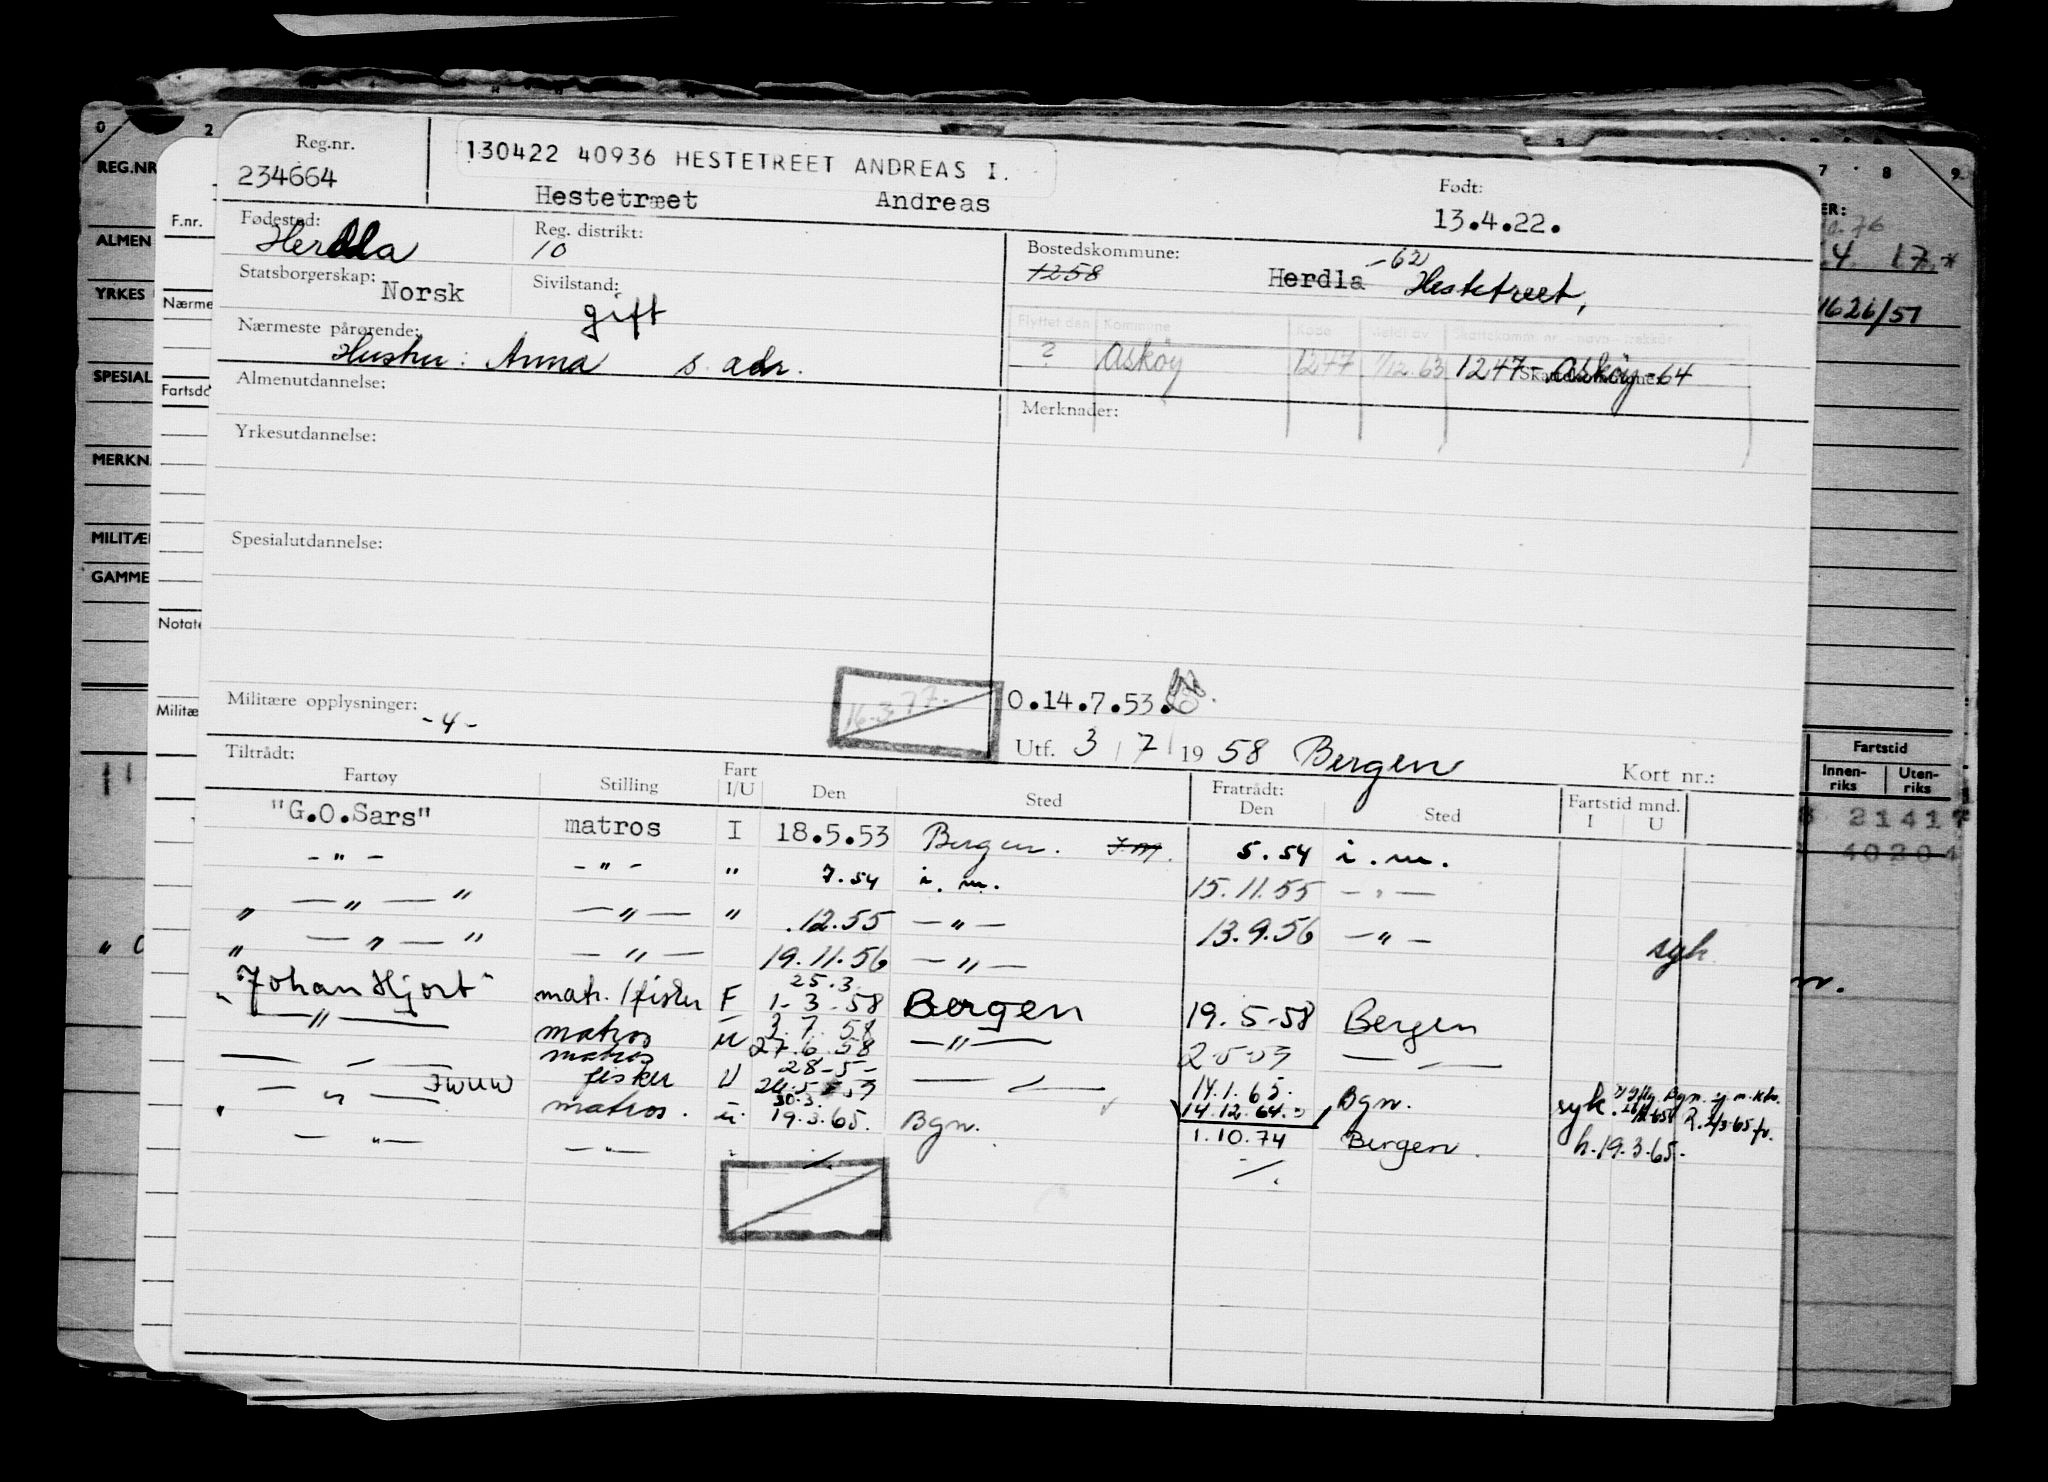 Reg.nr. 130422 40936 HESTETREET ANDREAS I. Født:
234664 Hestetræet Andreas 13.4.22.
Fødested: Herdla Reg. distrikt: 10 Bostedskommune: 1258 Herdla -62 Hestetreet,
Statsborgerskap: Norsk Sivilstand: gift
Flyttet den Kommune Kode Meldt av Skattekomm. nr. - navn - trekkår
Nærmeste pårørende: Hustru: Anna s. adr. ? Askøy 1247 1/12.63 1247-Askøy-64
Almenutdannelse: Merknader:
Yrkesutdannelse:
Spesialutdannelse:
16.3.77- 0.14.7.53.
Militære opplysninger: -4- Utf. 3 / 7 / 19 58 Bergen
Tiltrådt: Kort nr.:
Fartøy Stilling Fart I/U Den Sted Fratrådt: Den Sted Fartstid mnd. I U
"G.O.Sars" matros I 18.5.53 Bergen. I.M. 5.54 i.m.
- " - - " - " 7.54 i.m. 15.11.55 - " -
" - " - " - " - " .12.55 - " - 13.9.56 - " - syk
" - " - " - " - 19.11.56 - " -
"Johan Hjort" matr./fisker F 25.3. 1-3-58 Bergen 19.5-58 Bergen
- " - matros U 3.7.58 27.6.58 - " - 2-5-59 - " -
- " - matros fisker U 28-5- 24.5-59 - " - 14.1.65. 14.12.64. Bgn. syk.
- " - JWUW matros. U. 30.3. 19.3.65. Bgn. 1.10.74 Bergen. h.19.3.65.-
- " - - " -
0 2
REG.NR
F.nr.
ALMEN
YRKES
Nærme
SPESIAL
Fartsdo
MERKN
MILITÆ
GAMME
Notate
Militæ
7 8 9
ER:
1626/51
Fartstid
Innen-riks Uten-riks
21417
40204